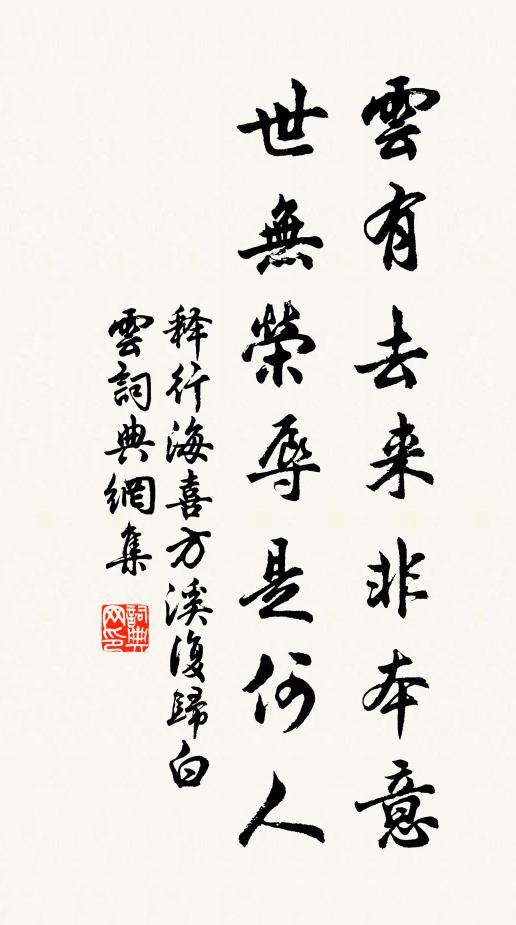 雲有去来非本意
世無榮辱是何人
释行海喜方溪復歸白
雲詞典網集
詞典
网印